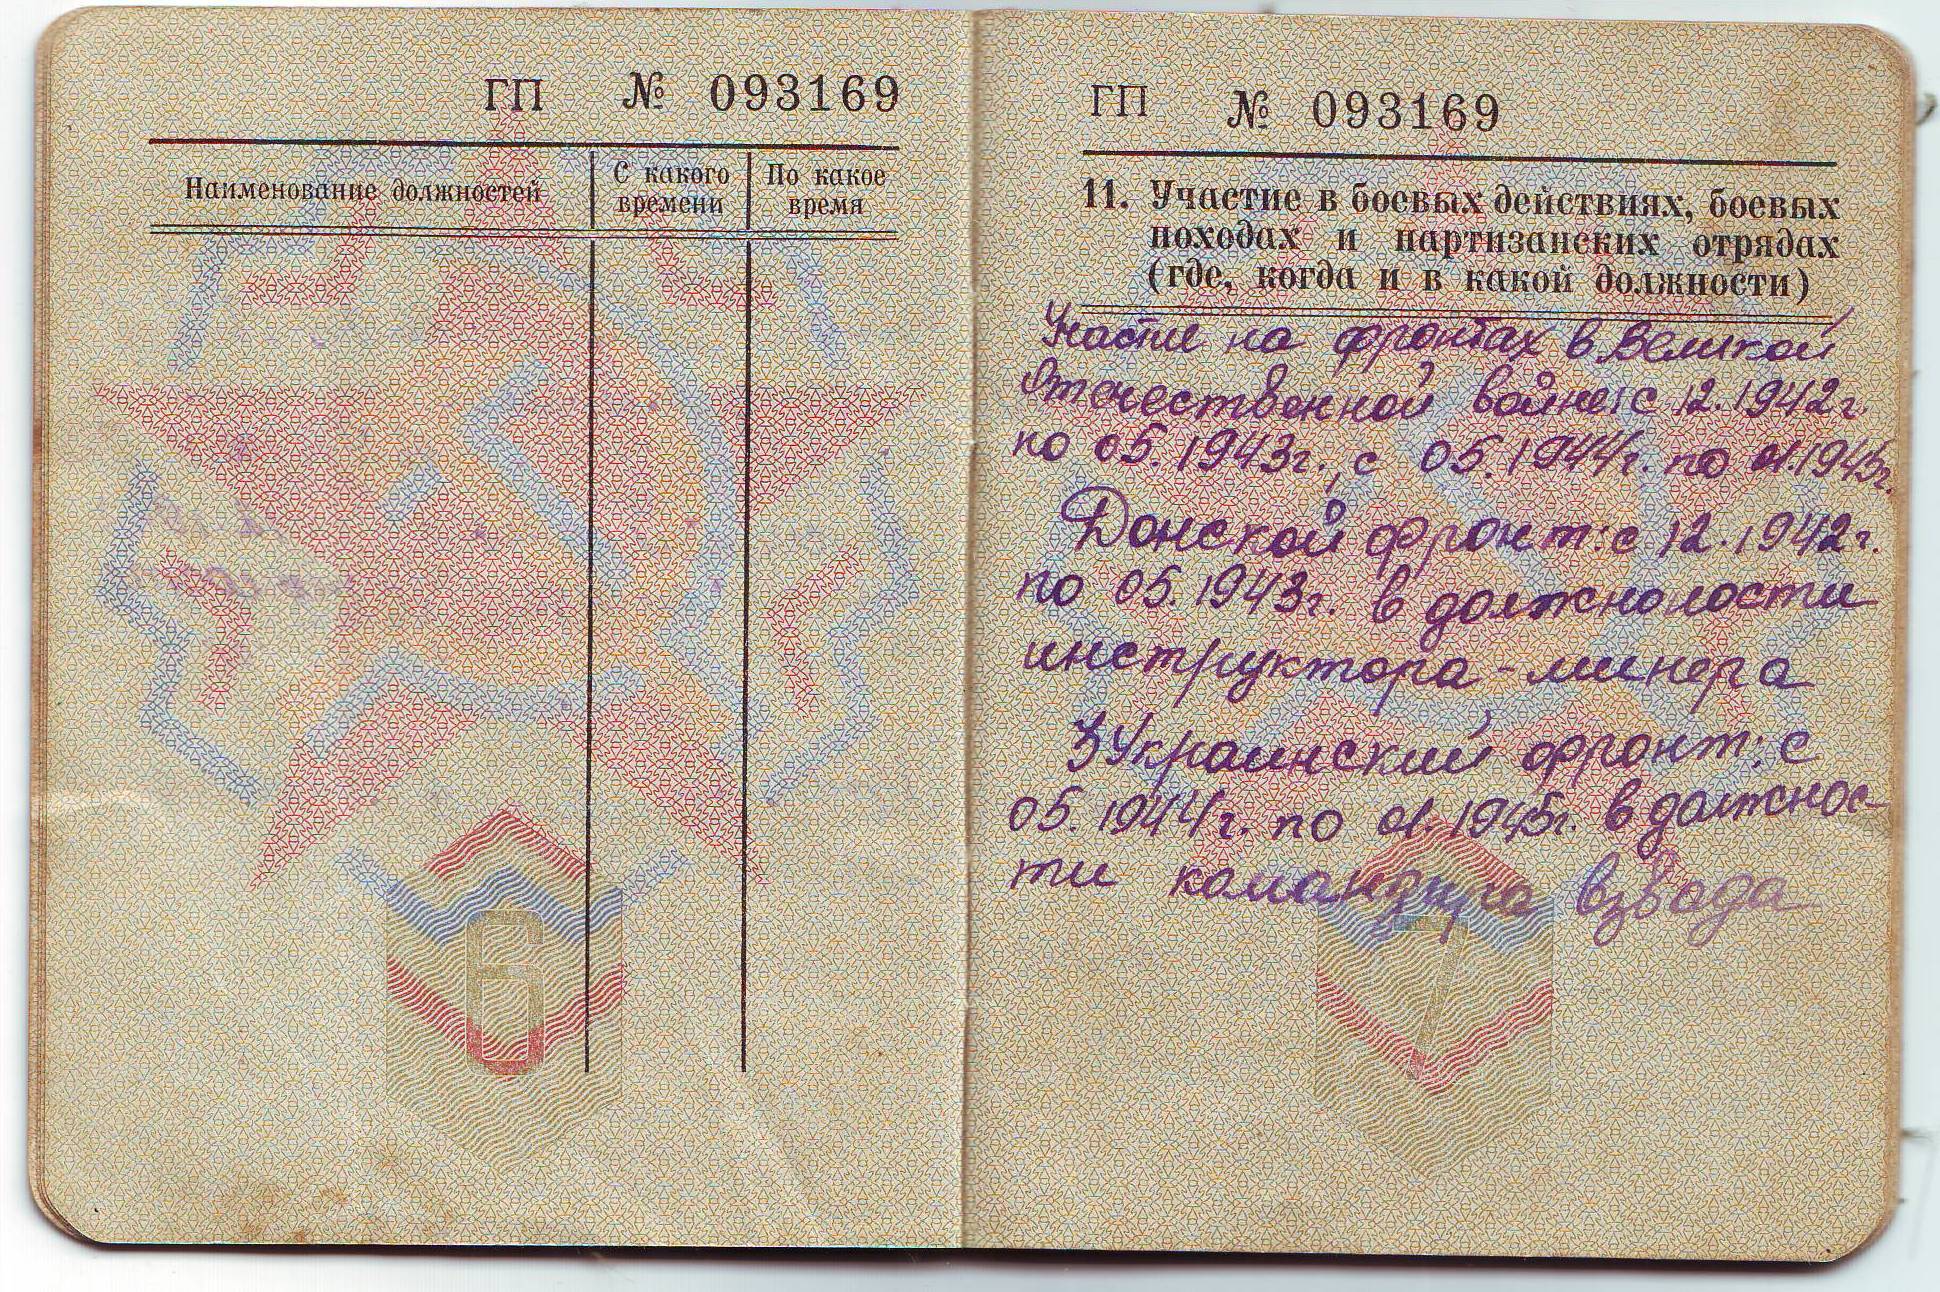 ГП № 093169
Наименование должностей
С какого
времени
По какое
время
6
ГП № 093169
11. Участие в боевых действиях, боевых
походах и партизанских отрядах
(где, когда и в какой должности)
Участие на фронтах в Великой
Отечественной войне: с 12.1942г.
по 05.1943г., с 05.1944г. по 01.1945г.
Донской фронт: с 12.1942г.
по 05.1943г. в должноности
инструктора-минера
3 Украинский фронт: с
05.1944г. по 01.1945г. в должнос-
ти командира взвода
7